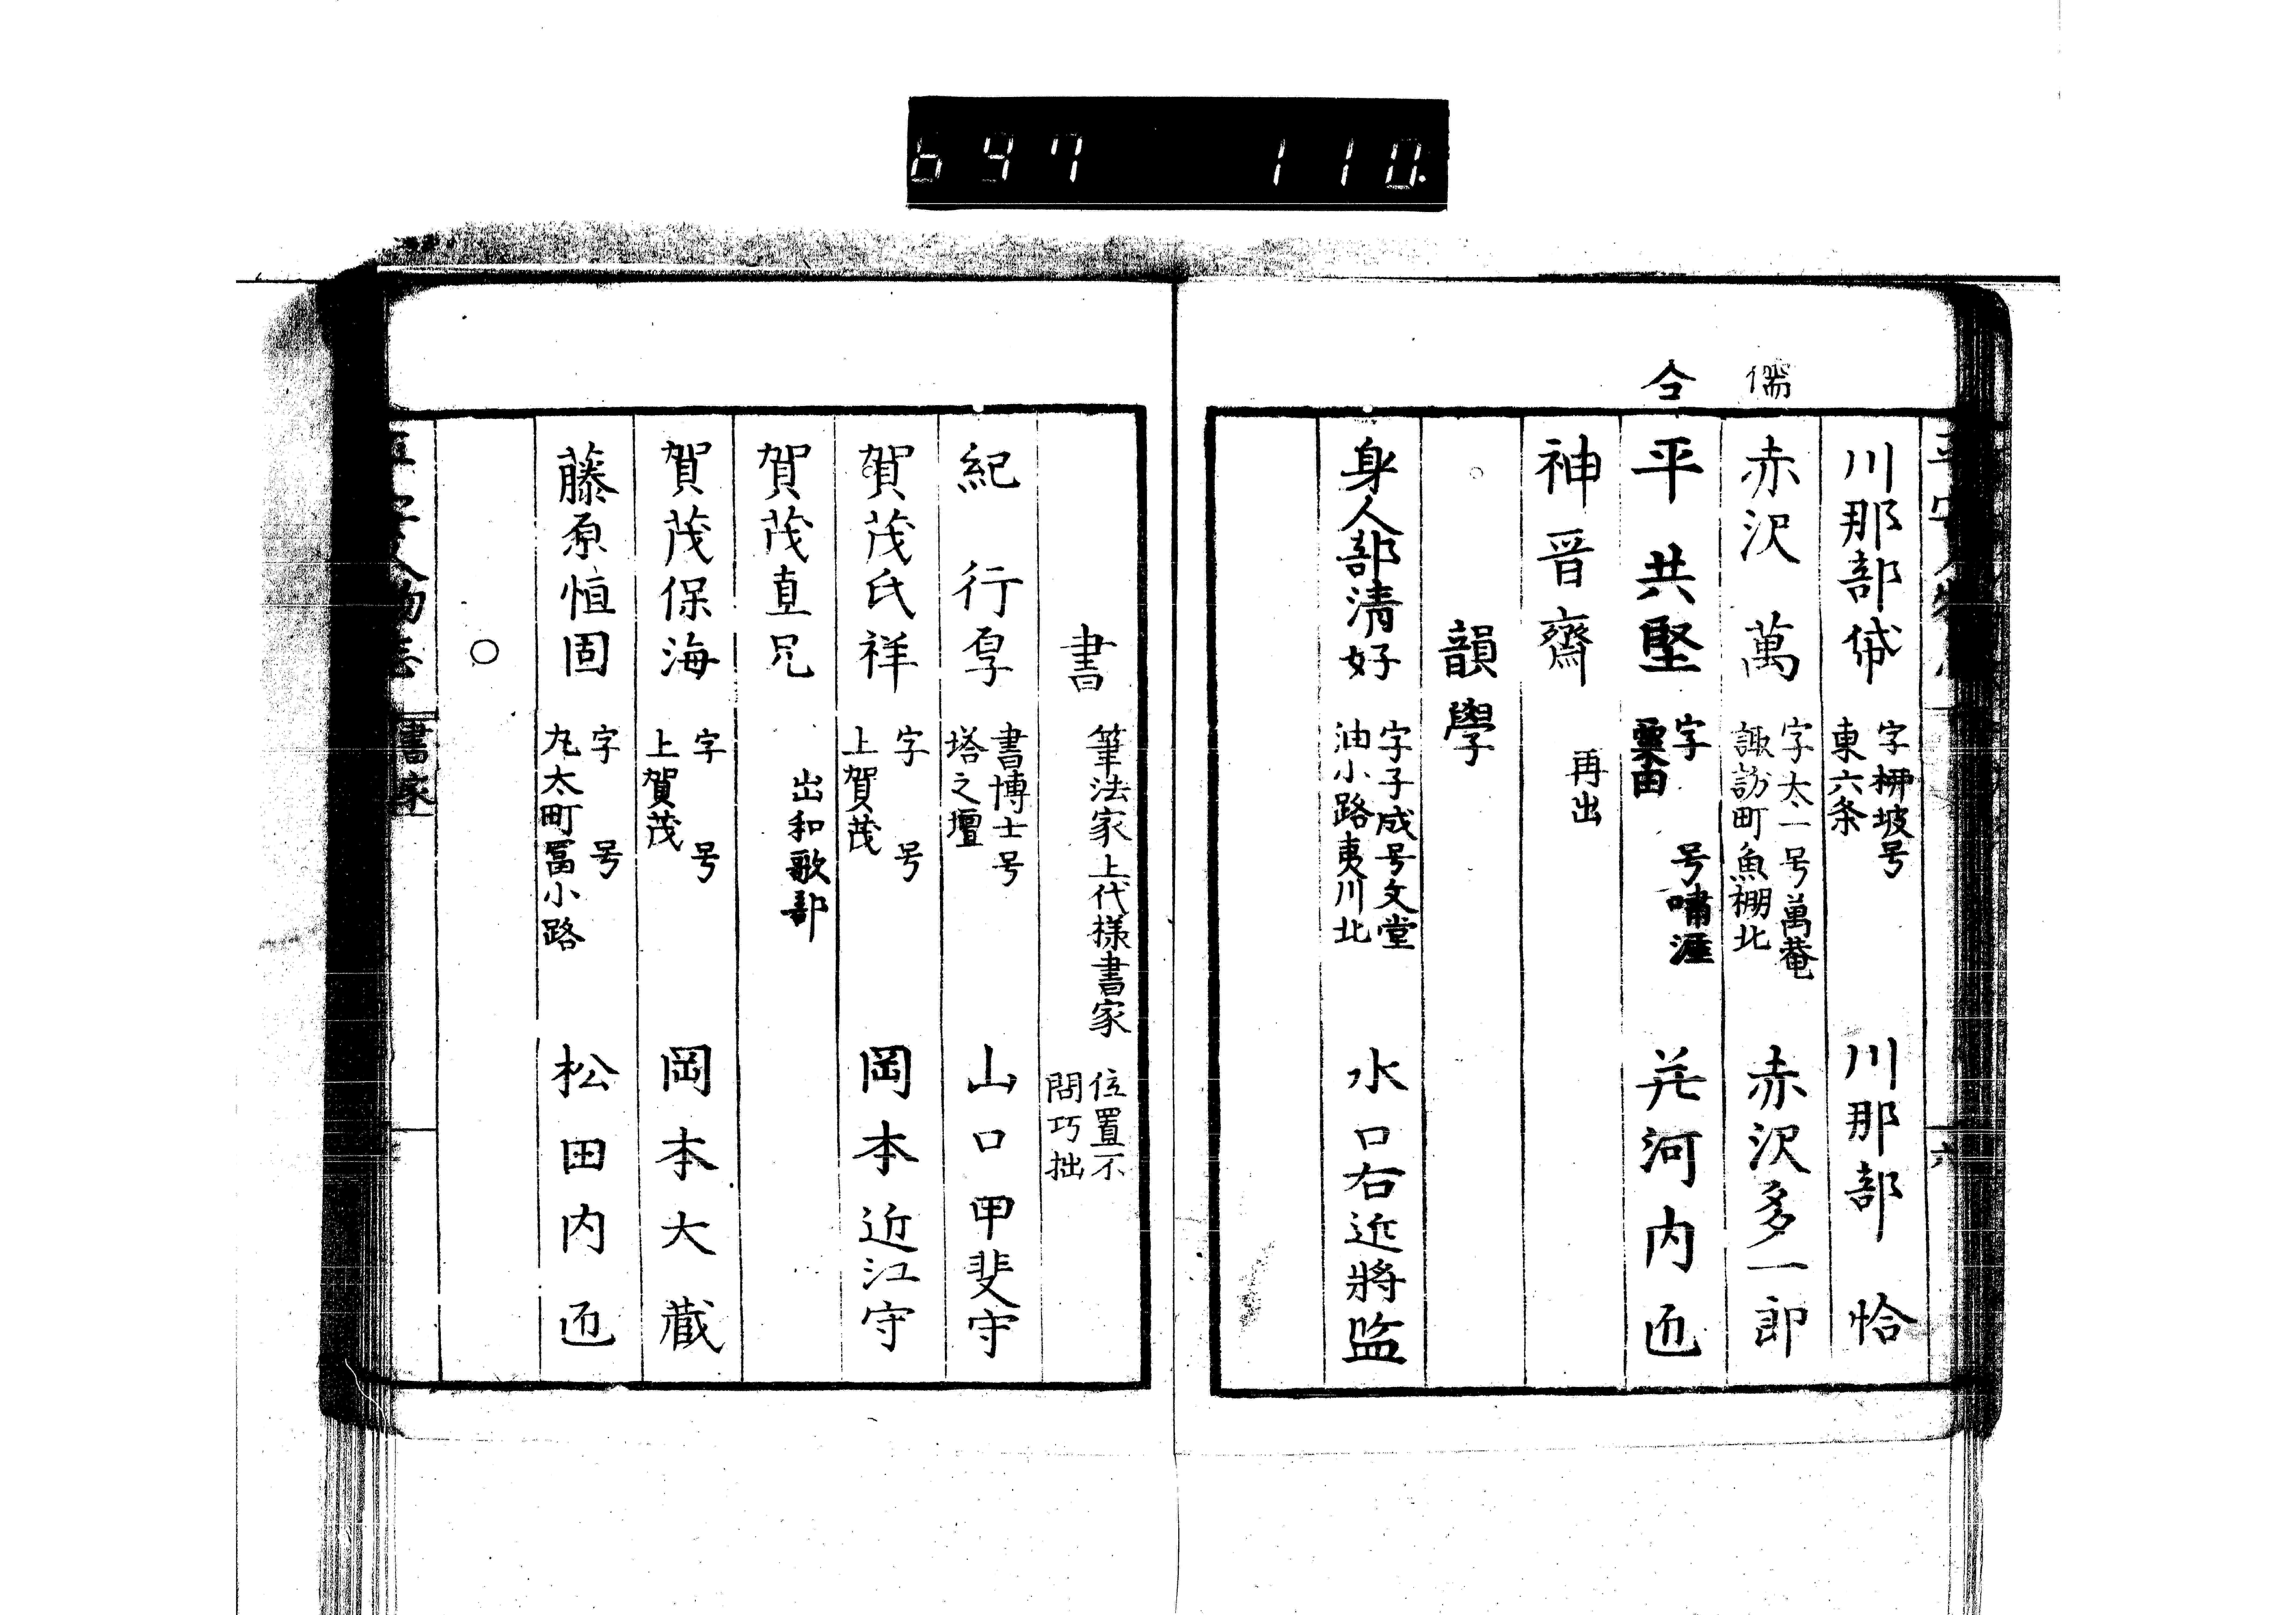 647 110
儒
合
川那部 字 坡号 東六条 川那部恰
赤沢萬 字太一号萬菴 諏訪町魚棚北 赤沢多一郎
平共堅 字 号嘯涯 粟田 并河内匠
神晋齋 再出
韻學
身人部清好 字子成号文堂 油小路夷川北 水口右近将監
六
書 筆法家上代様書家 位置不問巧拙
紀行厚 書博士号 塔之壇 山口甲斐守
賀茂氏祥 字 号 上賀茂 岡本近江守
賀茂直兄 出和歌部
賀茂保海 字 号 上賀茂 岡本大蔵
藤原恒固 字 号 丸太町冨小路 松田内匠
○
書家